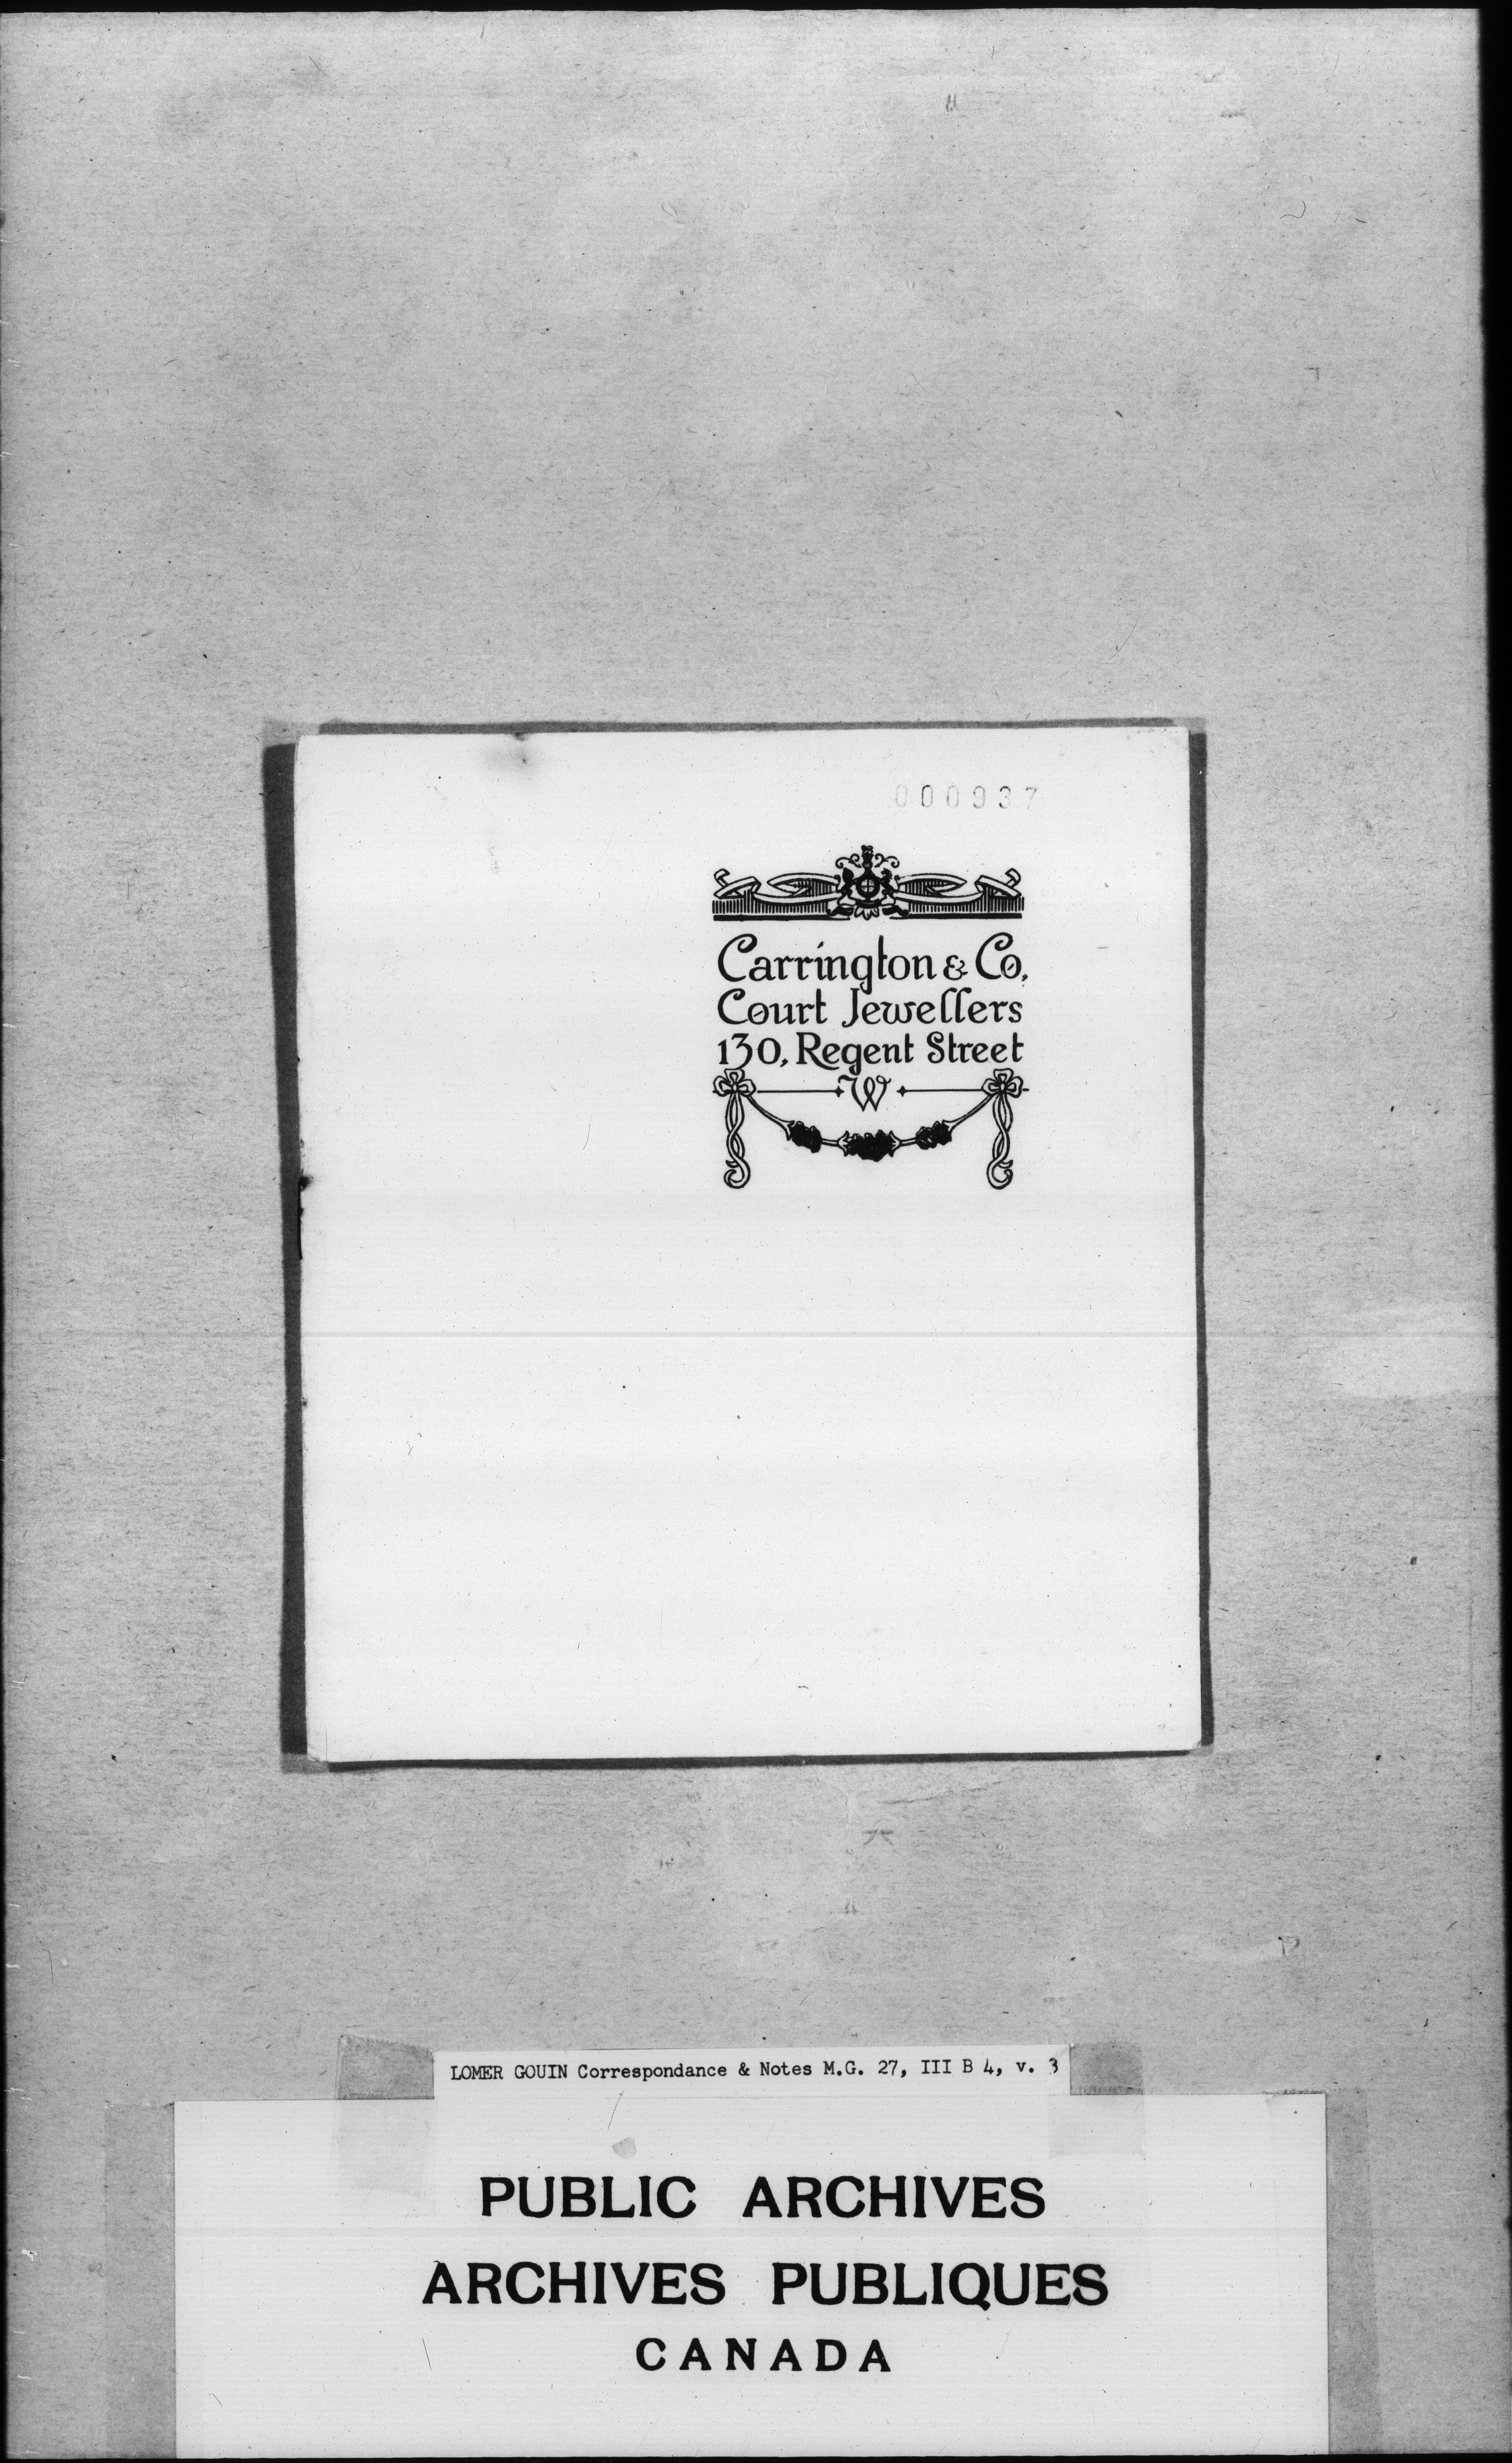 000937
Carrington & Co.
Court Jewellers
130, Regent Street
W
LOMER GOUIN Correspondance & Notes M.G. 27, III B 4, v. 3
PUBLIC ARCHIVES
ARCHIVES PUBLIQUES
CANADA